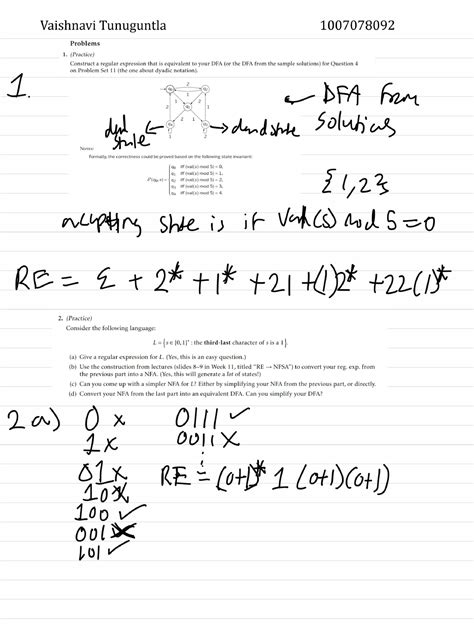 Vaishnavi Tunuguntla 1007078092
Problems
1. (Practice)
Construct a regular expression that is equivalent to your DFA (or the DFA from the sample solutions) for Question 4
on Problem Set 11 (the one about dyadic notation).
1.
DFA from
solutions
dead state
Notes:
Formally, the correctness could be proved based on the following state invariant:
q0 iff (val(s) mod 5) = 0,
q1 iff (val(s) mod 5) = 1,
q2 iff (val(s) mod 5) = 2,
q3 iff (val(s) mod 5) = 3,
q4 iff (val(s) mod 5) = 4.
{1,2}
accepting state is if Val(s) mod 5=0
RE = ε + 2* + 1* + 21 + (1)2* + 22(1)*
2. (Practice)
Consider the following language:
L = {s ∈ {0,1}* : the third-last character of s is a 1}.
(a) Give a regular expression for L. (Yes, this is an easy question.)
(b) Use the construction from lectures (slides 8–9 in Week 11, titled "RE → NFSA") to convert your reg. exp. from
the previous part into a NFA. (Yes, this will generate a lot of states!)
(c) Can you come up with a simpler NFA for L? Either by simplifying your NFA from the previous part, or directly.
(d) Convert your NFA from the last part into an equivalent DFA. Can you simplify your DFA?
2a) 0 x 0111 ✓
1x 0011 X
01x
10x RE = (0+1)* 1 (0+1)(0+1)
100 ✓
001 X
101 ✓